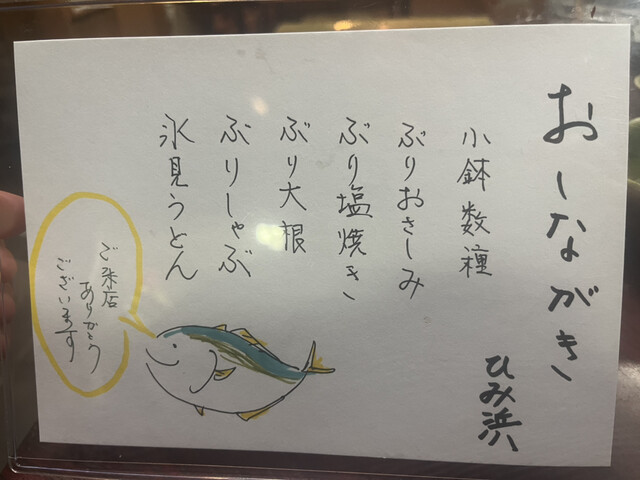 おしながき
ひみ浜
小鉢数種
ぶりおさしみ
ぶり塩焼き
ぶり大根
ぶりしゃぶ
氷見うどん
ご来店
ありがとう
ございます